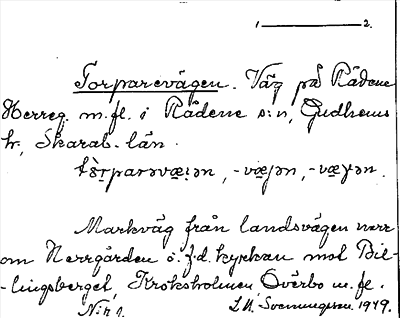 1 ——— 2.
Torparevägen. Väg på Rådene
Herreg. m.fl. i Rådene s:n, Gudhems
h., Skarab. län.
Markväg från landsvägen norr
om Herrgården ö. f.d. kyrkan mot Bil-
-lingsberget, Kroksholmen Överbo m.fl.
N:r 1. Svenningson 1949.